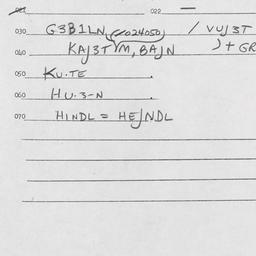 022
030 G3B1LN (024050) / VUJ3T
040 KAJ3T M, BAJN ) + GR
050 KU.TE .
060 HU.3-N .
070 HINDL = HEJNDL